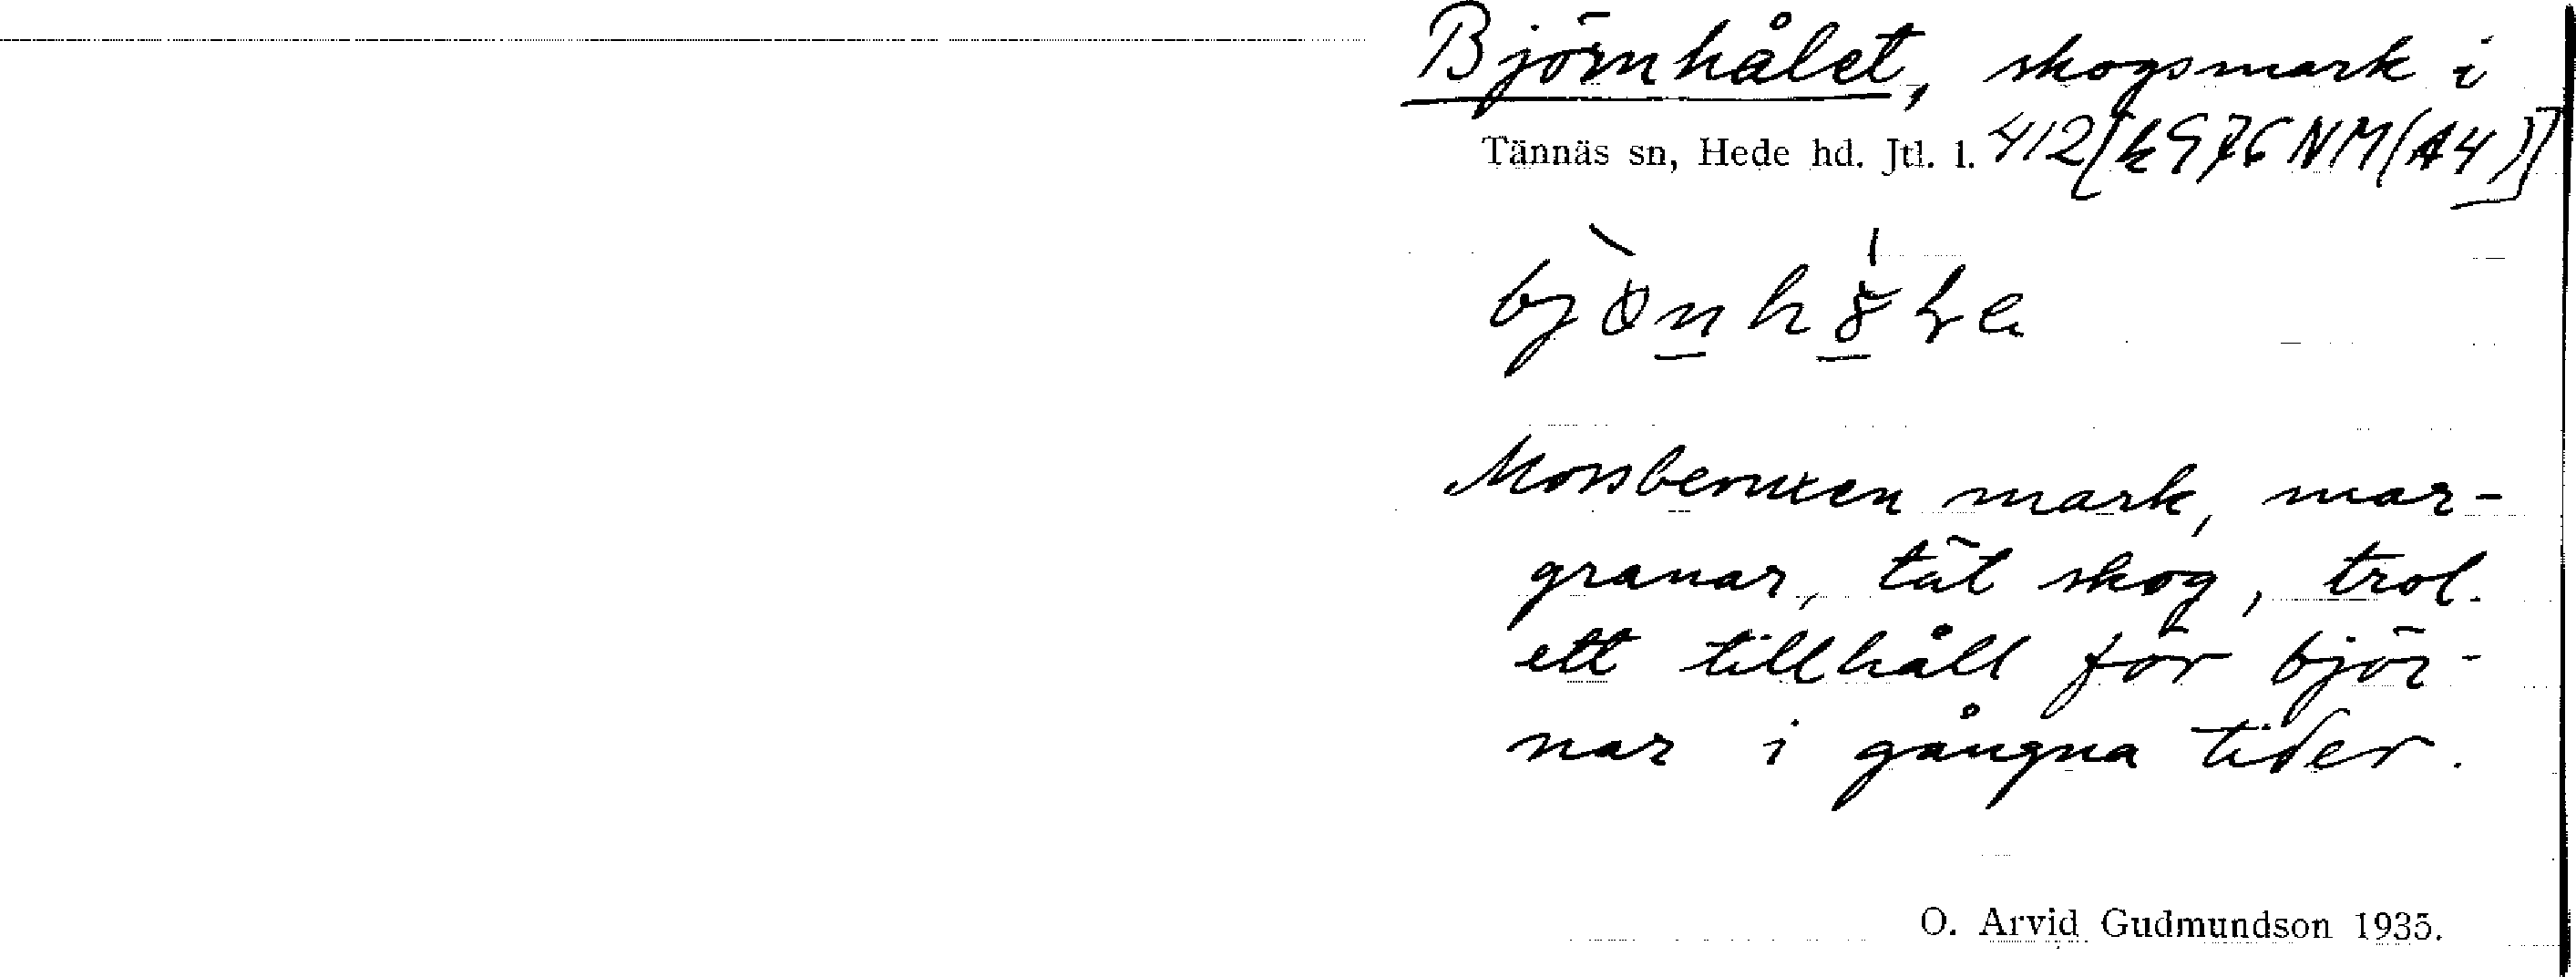 Björnhålet, skogsmark i
Tännäs sn, Hede hd. Jtl. l. 412[k976NM(A4)]
Mossbevuxen mark, mar-
granar, tät skog, trol.
ett tillhåll för björ-
nar i gångna tider.
O. Arvid Gudmundson 1935.